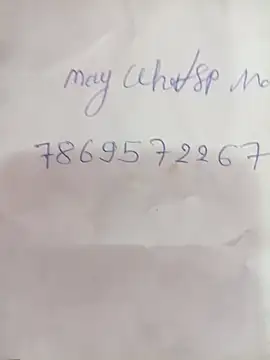 may Whatsp No
7869572267